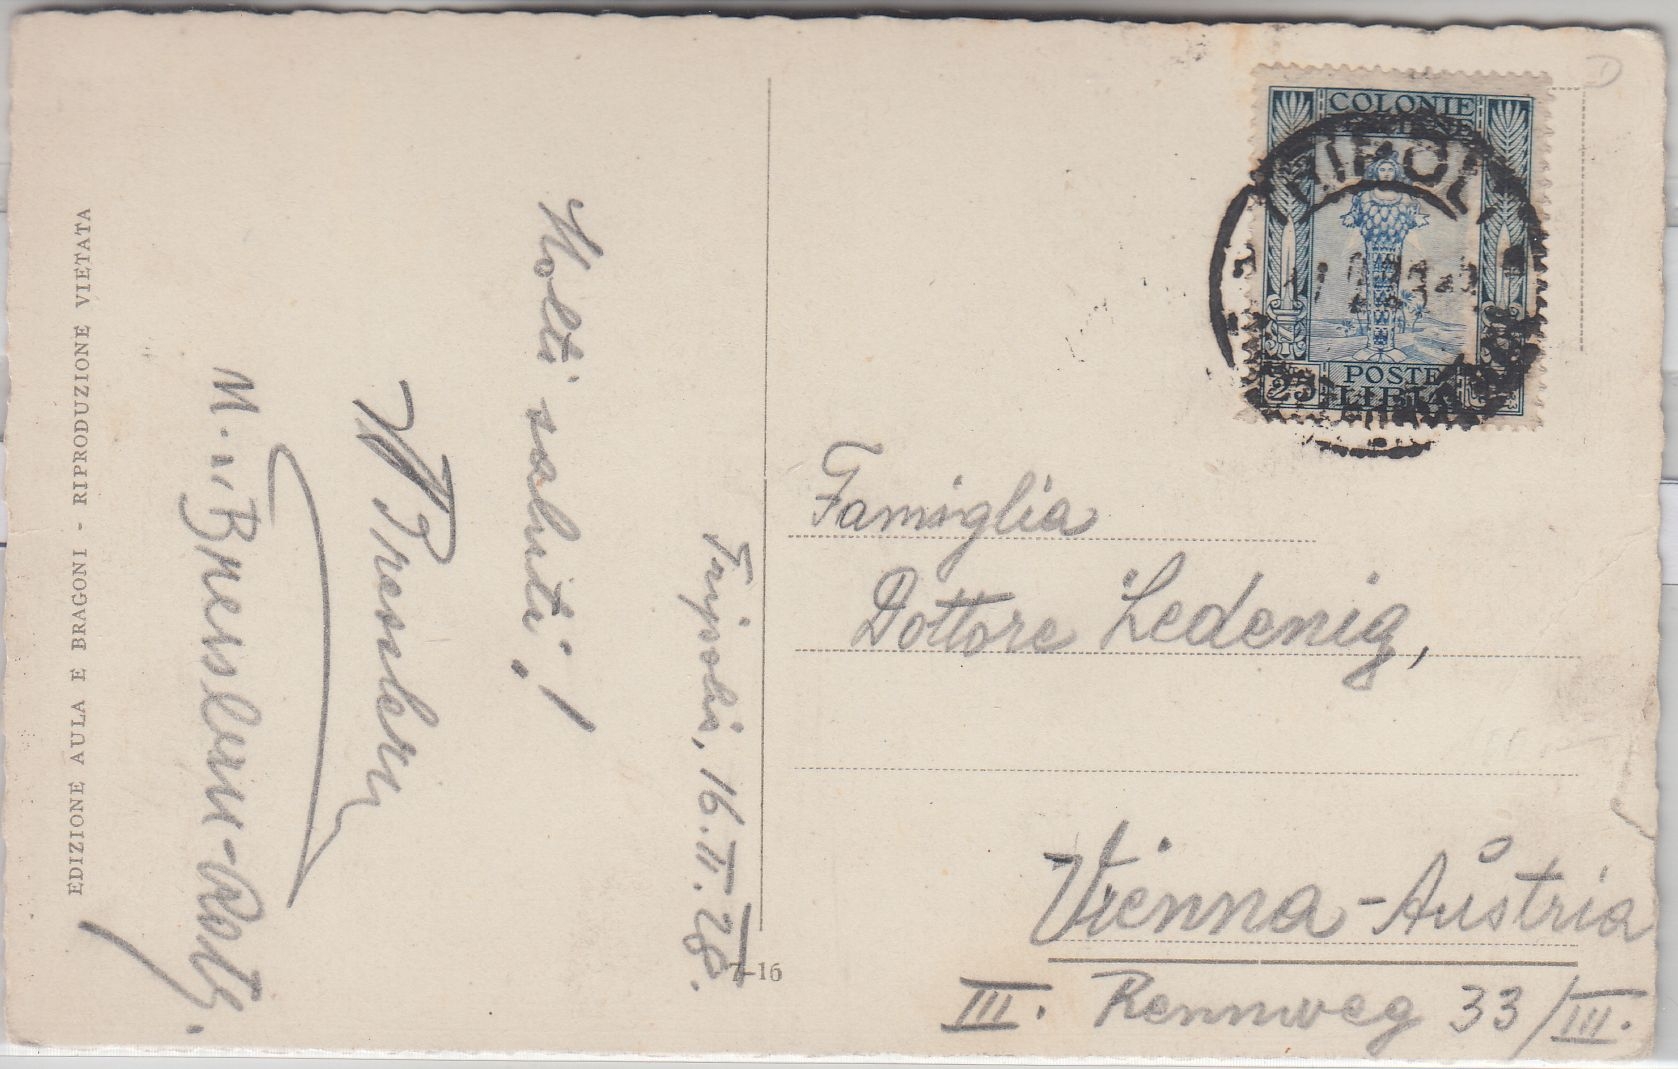 EDIZIONE AULA E BRAGONI - RIPRODUZIONE VIETATA
Tripolis, 16.II.28.
Molti saluti!
7-16
COLONIE
POSTE
LIBIA
25
TRIPOLI
Famiglia
Dottore Ledenig,
Vienna-Austria
III. Rennweg 33/III.
D